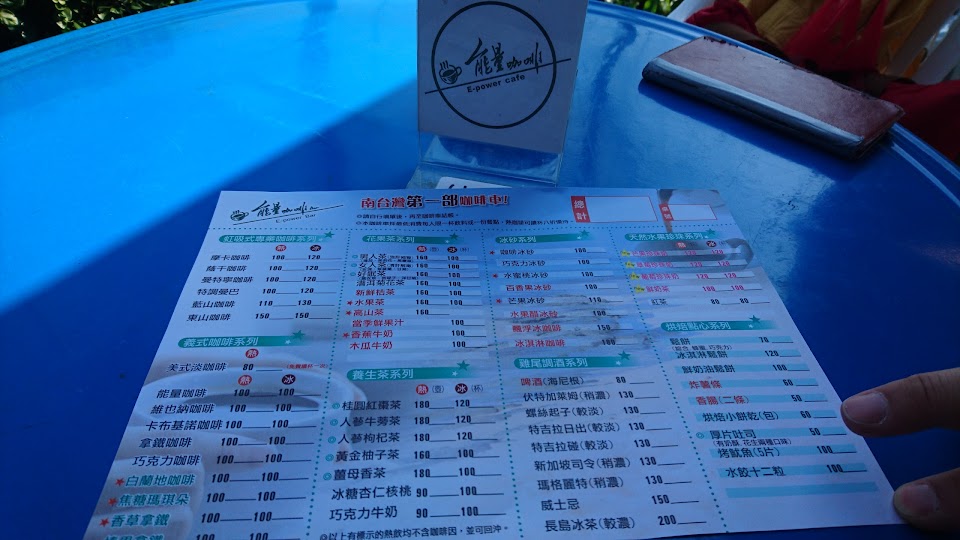 能量咖啡
E-power cafe
能量咖啡
E-power Bar
南台灣第一部咖啡車!!
總計
虹吸式專業咖啡系列
熱 冰
摩卡咖啡 100 120
薩干咖啡 100 120
曼特寧咖啡 100 120
特調曼巴 100 120
藍山咖啡 110 130
東山咖啡 150 150
義式咖啡系列
熱
美式淡咖啡 80
熱 冰
能量咖啡 100 100
維也納咖啡 100 100
卡布基諾咖啡 100 100
拿鐵咖啡 100 100
巧克力咖啡 100 100
★白蘭地咖啡 100 100
★焦糖瑪琪朵 100 100
★香草拿鐵 100 100
花果茶系列
熱(壹) 冰(杯)
男人茶 160 100
女人茶 160 100
好氣茶 160 100
洱菊花茶 160 100
新鮮桔茶 160 100
★水果茶 160 100
★高山茶 160 100
當季鮮果汁 100
★香蕉牛奶 100
木瓜牛奶 100
養生茶系列
熱(壹) 冰(杯)
桂圓紅棗茶 180 120
人蔘牛蒡茶 180 120
人蔘枸杞茶 180 120
黃金柚子茶 160 100
薑母香茶 180 100
冰糖杏仁核桃 90 100
巧克力牛奶 90 100
◎以上有標示的熱飲均不含咖啡因，並可回沖。
冰砂系列
★咖啡冰砂 100
巧克力冰砂 100
★水蜜桃冰砂 100
百香果冰砂 100
★芒果冰砂 100
水果醋冰砂 100
飄浮冰咖啡 150
冰淇淋咖啡 100
雞尾調酒系列
啤酒(海尼根) 80
伏特加萊姆(稍濃) 130
螺絲起子(較淡) 130
特吉拉日出(較淡) 130
特吉拉碰(較淡) 130
新加坡司令(稍濃) 130
瑪格麗特(稍濃) 130
威士忌 150
長島冰茶(較濃) 200
天然水果珍珠系列
熱 冰
120 120
120 120
120 120
鮮奶茶 100 100
紅茶 80 80
烘焙點心系列
鬆餅 70
冰淇淋鬆餅 120
鮮奶油鬆餅 100
炸薯條 60
香腸(二條) 50
烘焙小餅乾(包) 60
厚片吐司 50
(有奶酥.花生兩種口味)
烤魷魚(5片) 100
水餃十二粒 100